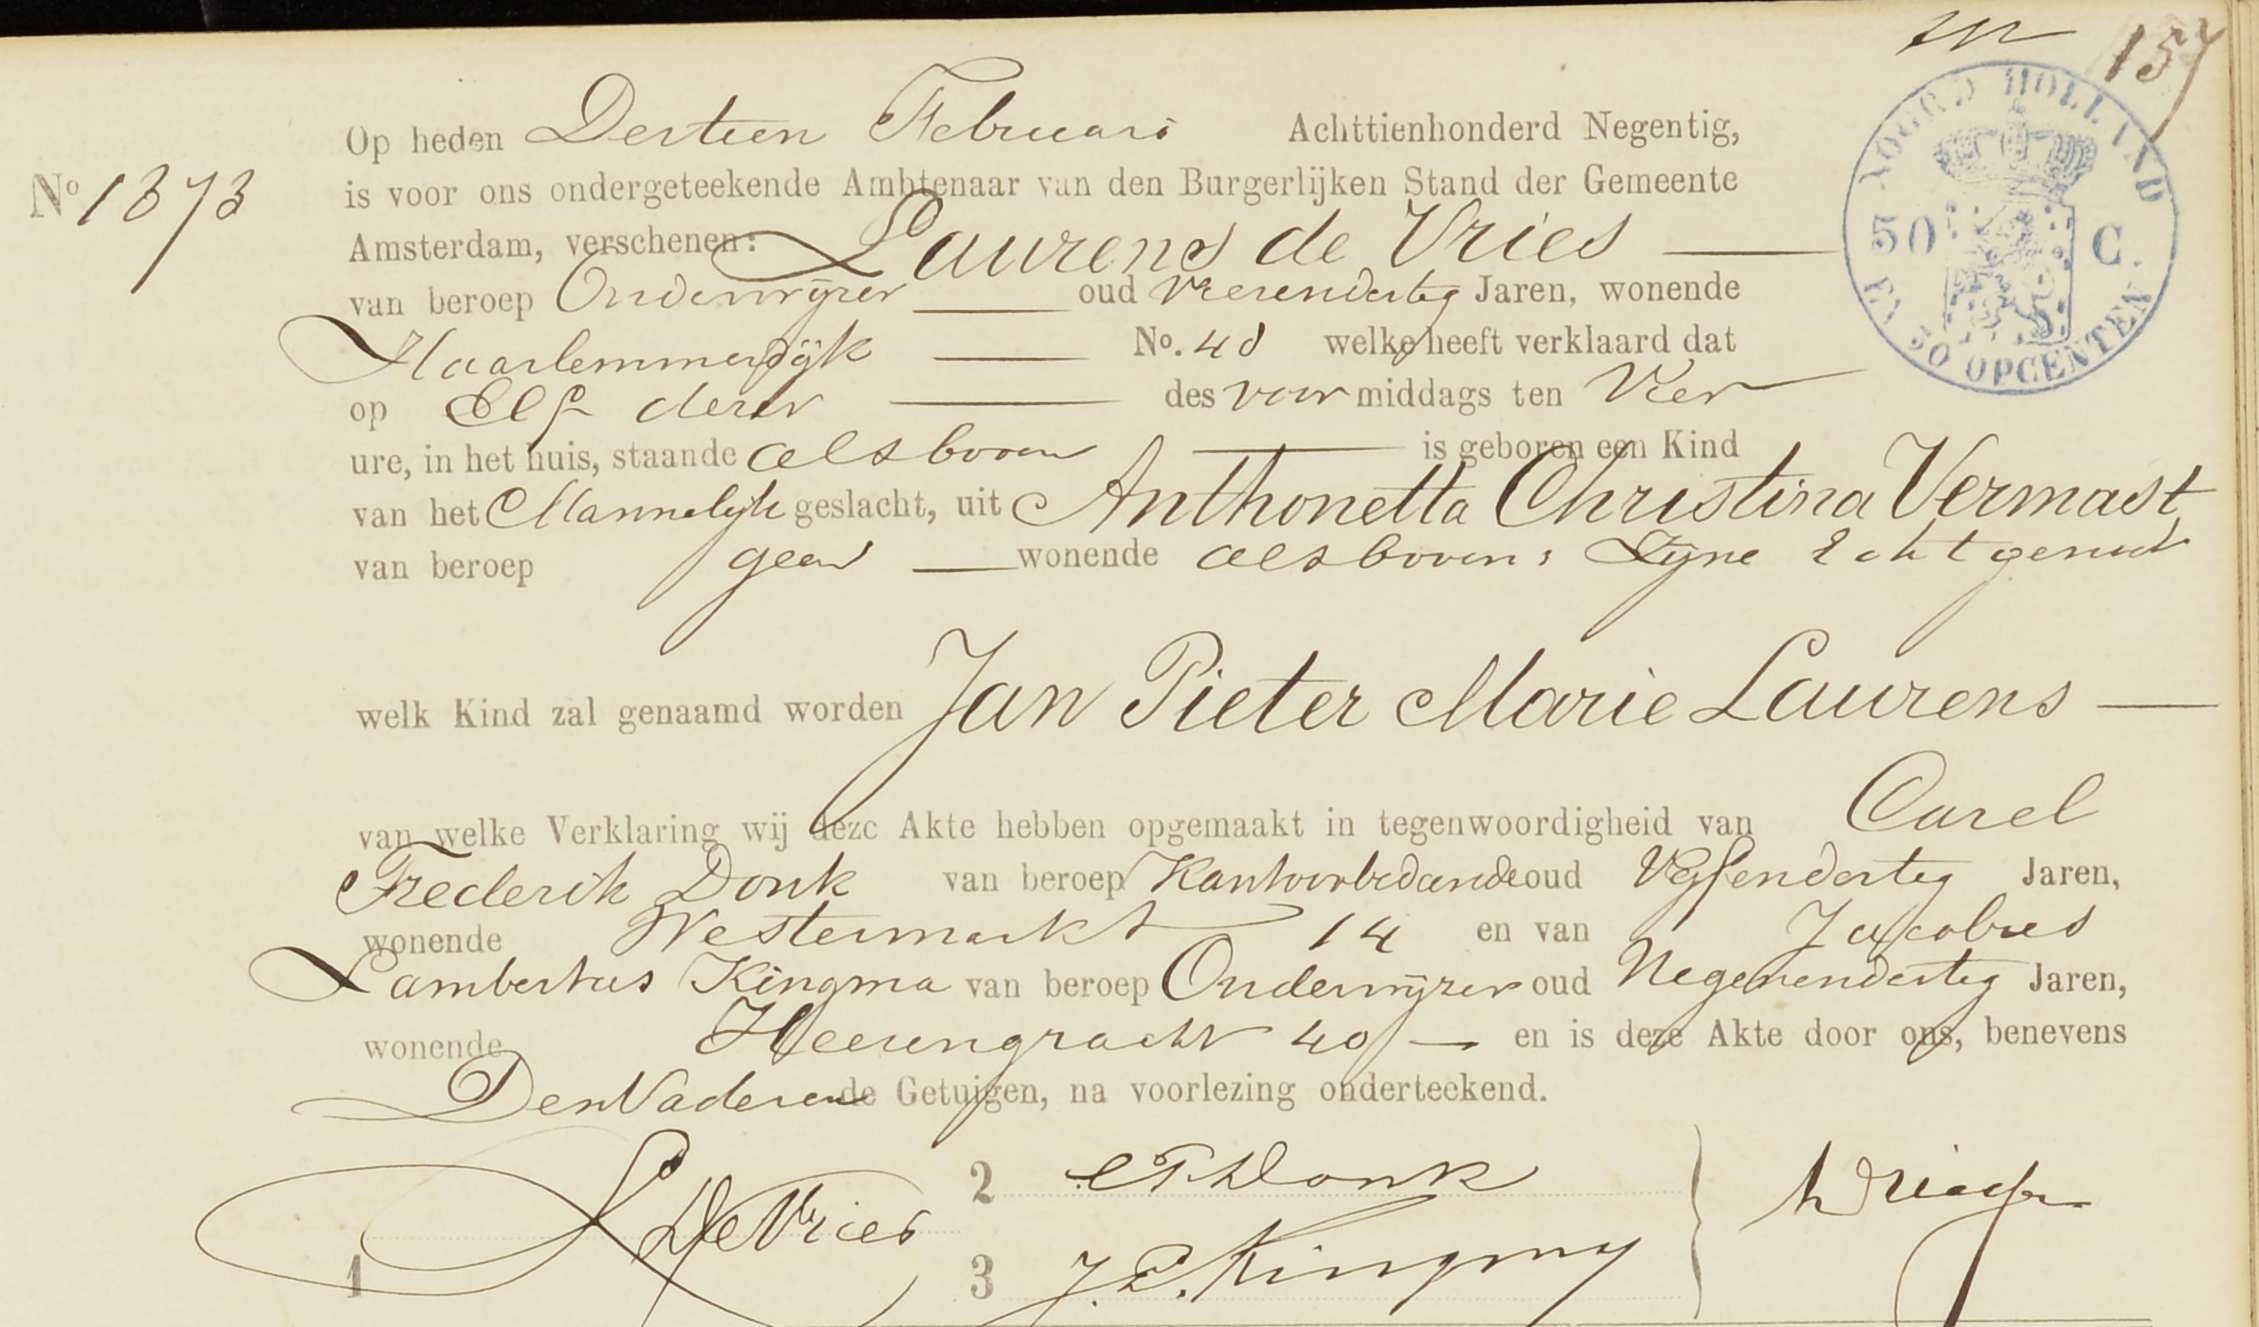 157
NOORD HOLLAND
50 C.
EN 50 OPCENTEN
Op heden Dertien Februari Achttienhonderd Negentig,
No 1373
is voor ons ondergeteekende Ambtenaar van den Burgerlijken Stand der Gemeente
Amsterdam, verschenen: Laurens de Vries
van beroep Onderwijzer oud Vierendertig Jaren, wonende
Haarlemmerdijk No. 48 welke heeft verklaard dat
op Elf dezer des voor middags ten Vier
ure, in het huis, staande alsboven is geboren een Kind
van het Mannelijk geslacht, uit Anthonetta Christina Vermast
van beroep geen wonende alsboven; Zijne Echtgenoot
welk Kind zal genaamd worden Jan Pieter Marie Laurens
van welke Verklaring wij deze Akte hebben opgemaakt in tegenwoordigheid van Carel
Frederik Donk van beroep Kantoorbediende oud Vijfendertig Jaren,
wonende Westermarkt 14 en van Jacobus
Lambertus Kingma van beroep Onderwijzer oud Negenendertig Jaren,
wonende Heerengracht 40 en is deze Akte door ons, benevens
Den Vader en de Getuigen, na voorlezing onderteekend.
1 L De Vries
2 C F Donk
3 J. L. Kingma